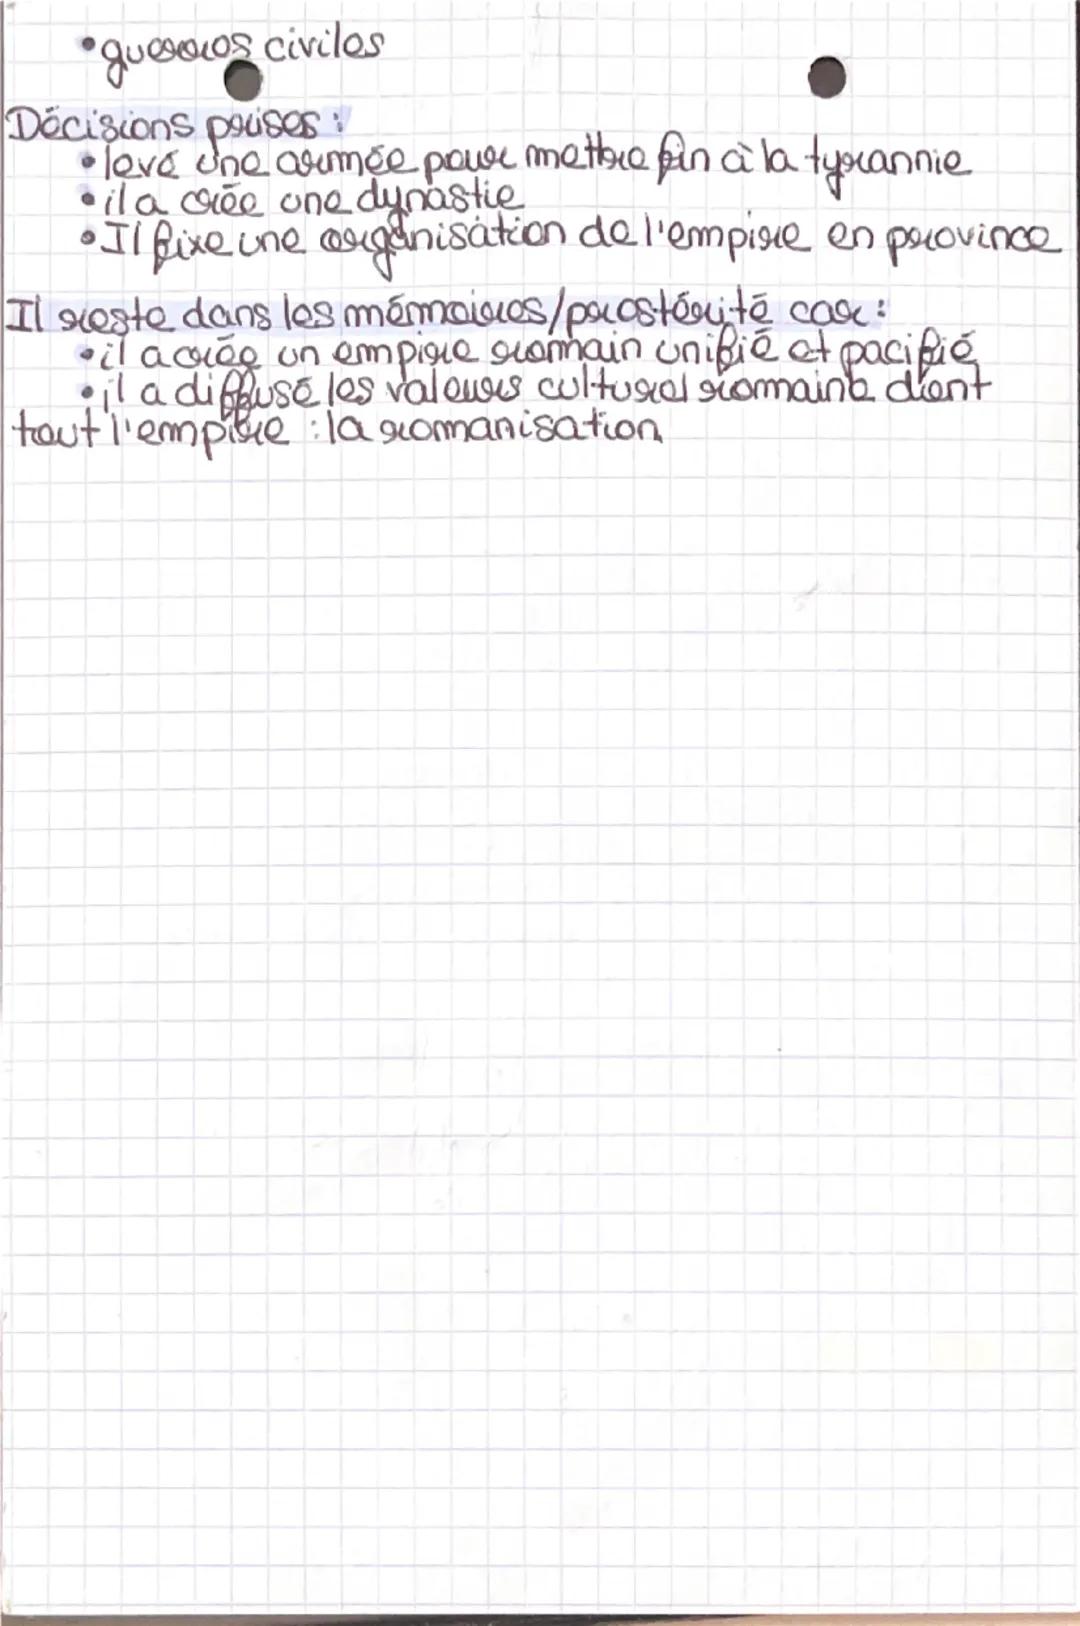 • guerres civiles
Décisions prises :
• levé une armée pour mettre fin à la tyrannie
• il a crée une dynastie
• Il fixe une organisation de l'empire en province
Il reste dans les mémoires/postérité car :
• il a crée un empire romain unifié et pacifié
• il a diffusé les valeurs culturel romaine dient
tout l'empire : la romanisation